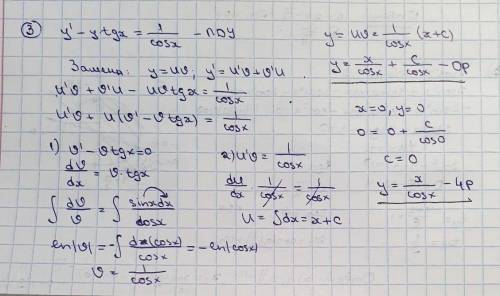 ③ y' - y tgx = 1/cosx - ЛДУ
Замена: y = uϑ, y' = u'ϑ + ϑ'u
u'ϑ + ϑ'u - uϑtgx = 1/cosx
u'ϑ + u(ϑ' - ϑtgx) = 1/cosx
1) ϑ' - ϑtgx = 0
dϑ/dx = ϑ·tgx
∫ dϑ/ϑ = ∫ sinxdx/cosx
ln|ϑ| = -∫ d(cosx)/cosx = -ln|cosx|
ϑ = 1/cosx
2) u'ϑ = 1/cosx
du/dx · 1/cosx = 1/cosx
u = ∫dx = x + c
y = uϑ = 1/cosx (x+c)
y = x/cosx + c/cosx - ОР
x=0, y=0
0 = 0 + c/cos0
c = 0
y = x/cosx - ЧР